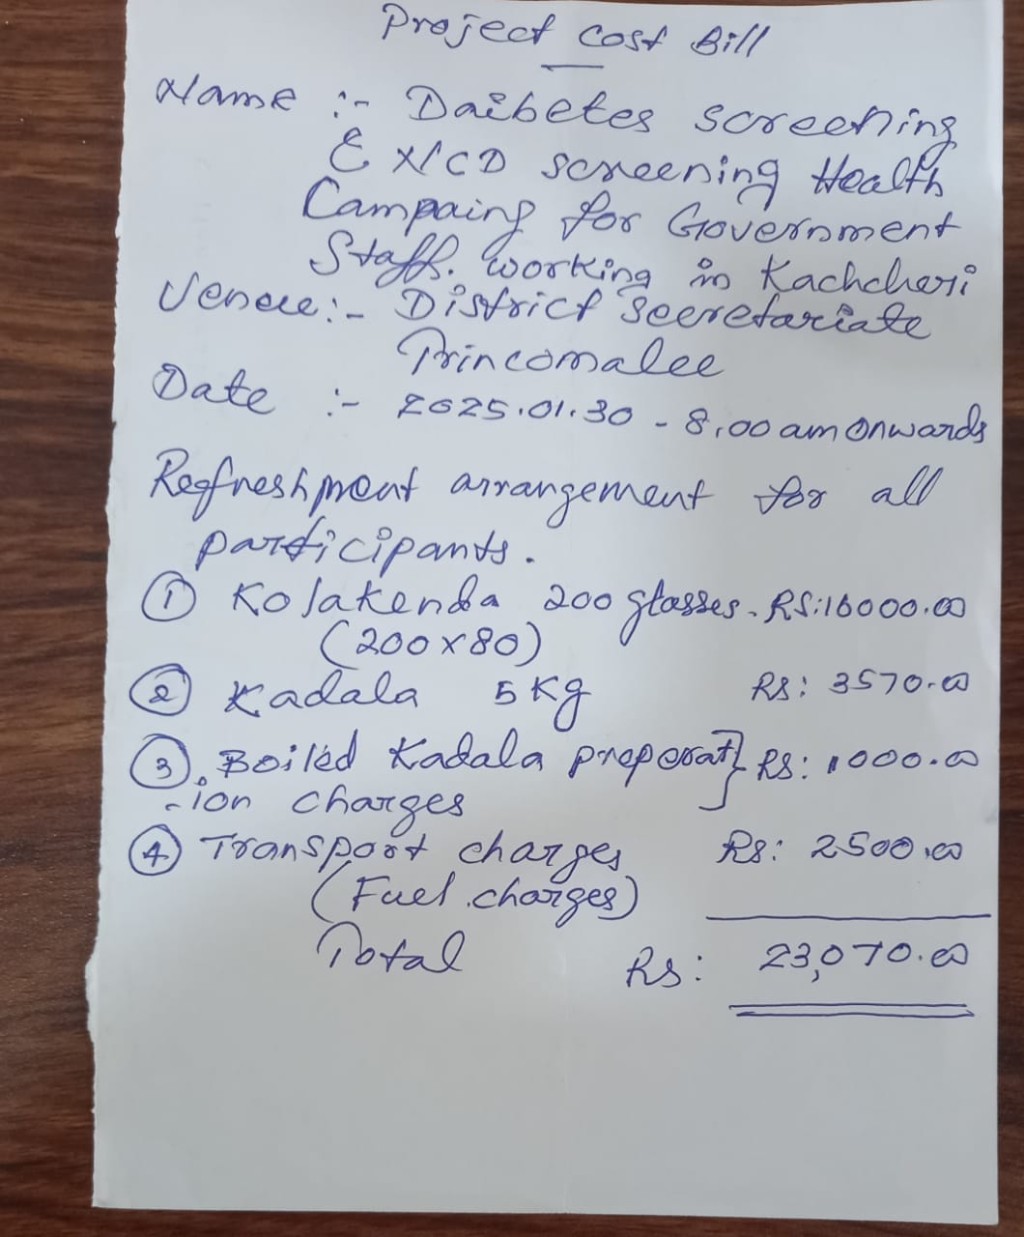 Project Cost Bill
Name :- Daibetes screening
& NCD screening Health
Campaing for Government
Staff. working in Kachcheri
Venue :- District Secretariate
Trincomalee
Date :- 2025.01.30 - 8.00 am onwards
Refreshment arrangement for all
participants.
① Kolakenda 200 glasses - RS: 16000.00
(200 x 80)
② Kadala 5 Kg Rs: 3570.00
③. Boiled Kadala preperat} Rs: 1000.00
-ion charges
④ Transport charges Rs: 2500.00
(Fuel charges)
Total Rs: 23,070.00